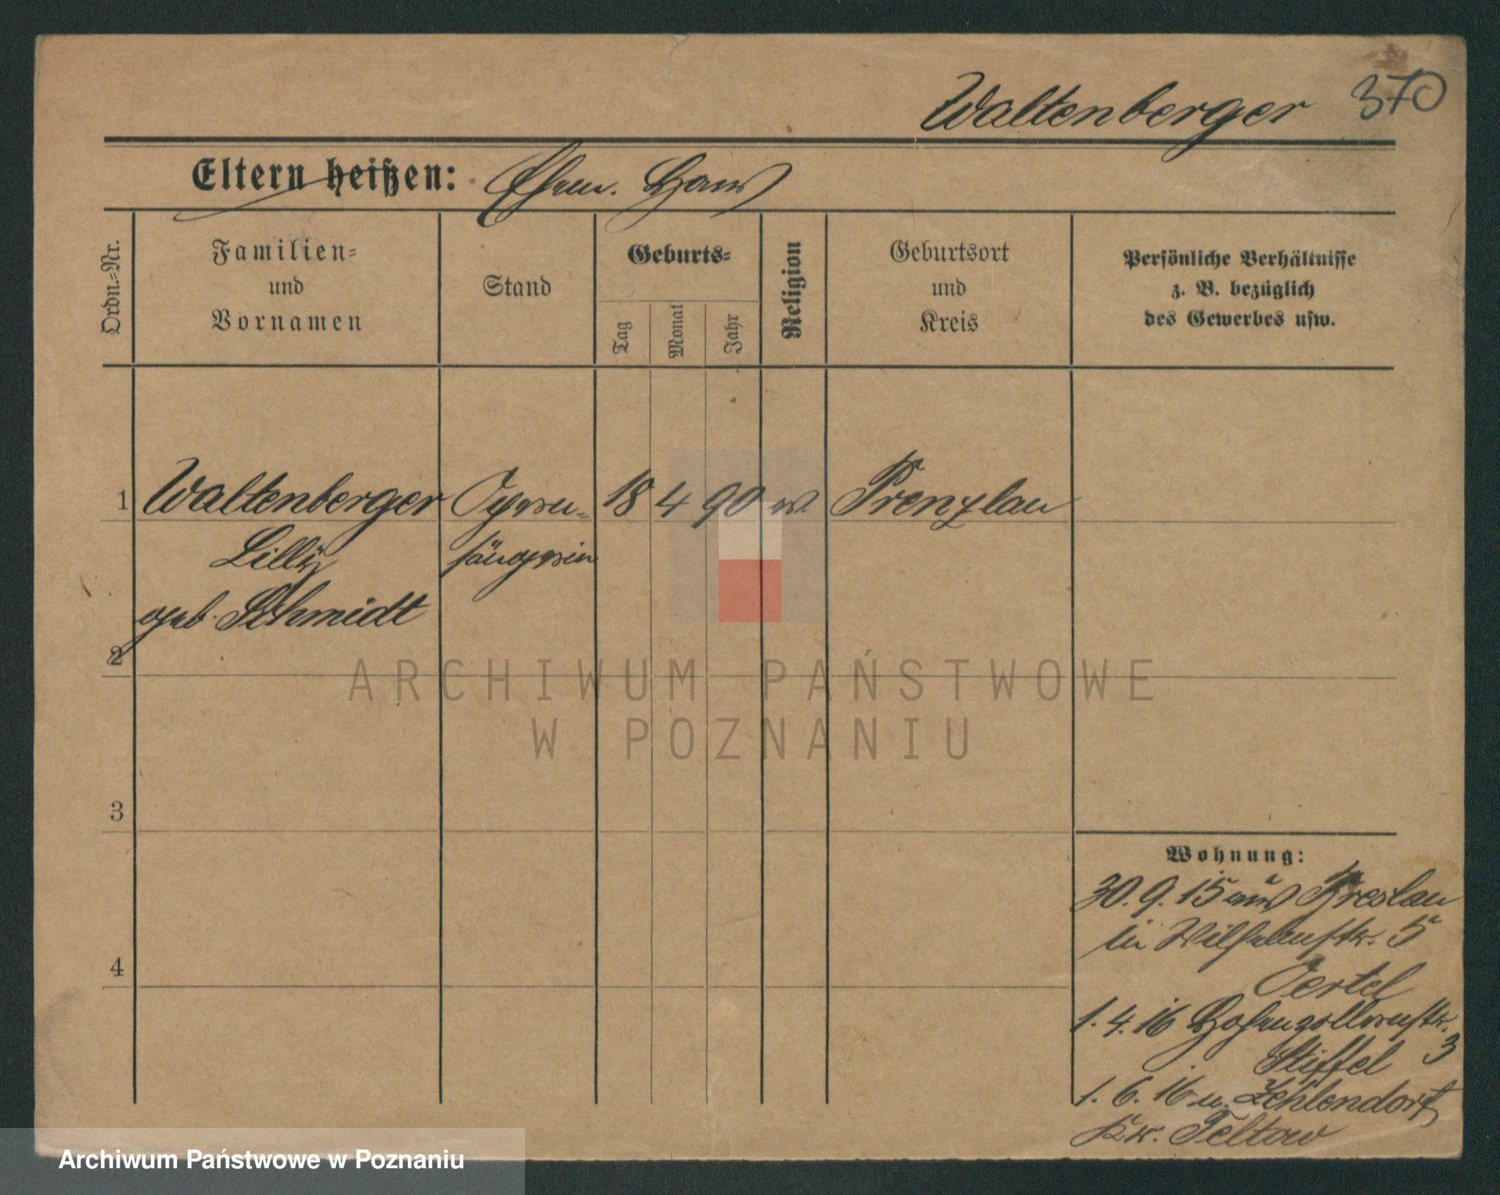 Waltenberger 370
Eltern heißen: Ehem. Hans
Ordn.-Nr.
Familien- und Vornamen
Stand
Geburts-
Tag
Monat
Jahr
Religion
Geburtsort und Kreis
Persönliche Verhältnisse
z. B. bezüglich
des Gewerbes usw.
1 Waltenberger Opern- 18 4 90 ev. Prenzlau
Lilly sängerin
geb. Schmidt
2
ARCHIWUM PAŃSTWOWE
W POZNANIU
3
Wohnung:
30.9.15 aus Breslau
in Wilhelmstr. 5
4
Oertel
1.4.16 Hohenzollernstr.
3
Stiffel
1.6.16 n. Zehlendorf
Kr. Teltow
Archiwum Państwowe w Poznaniu